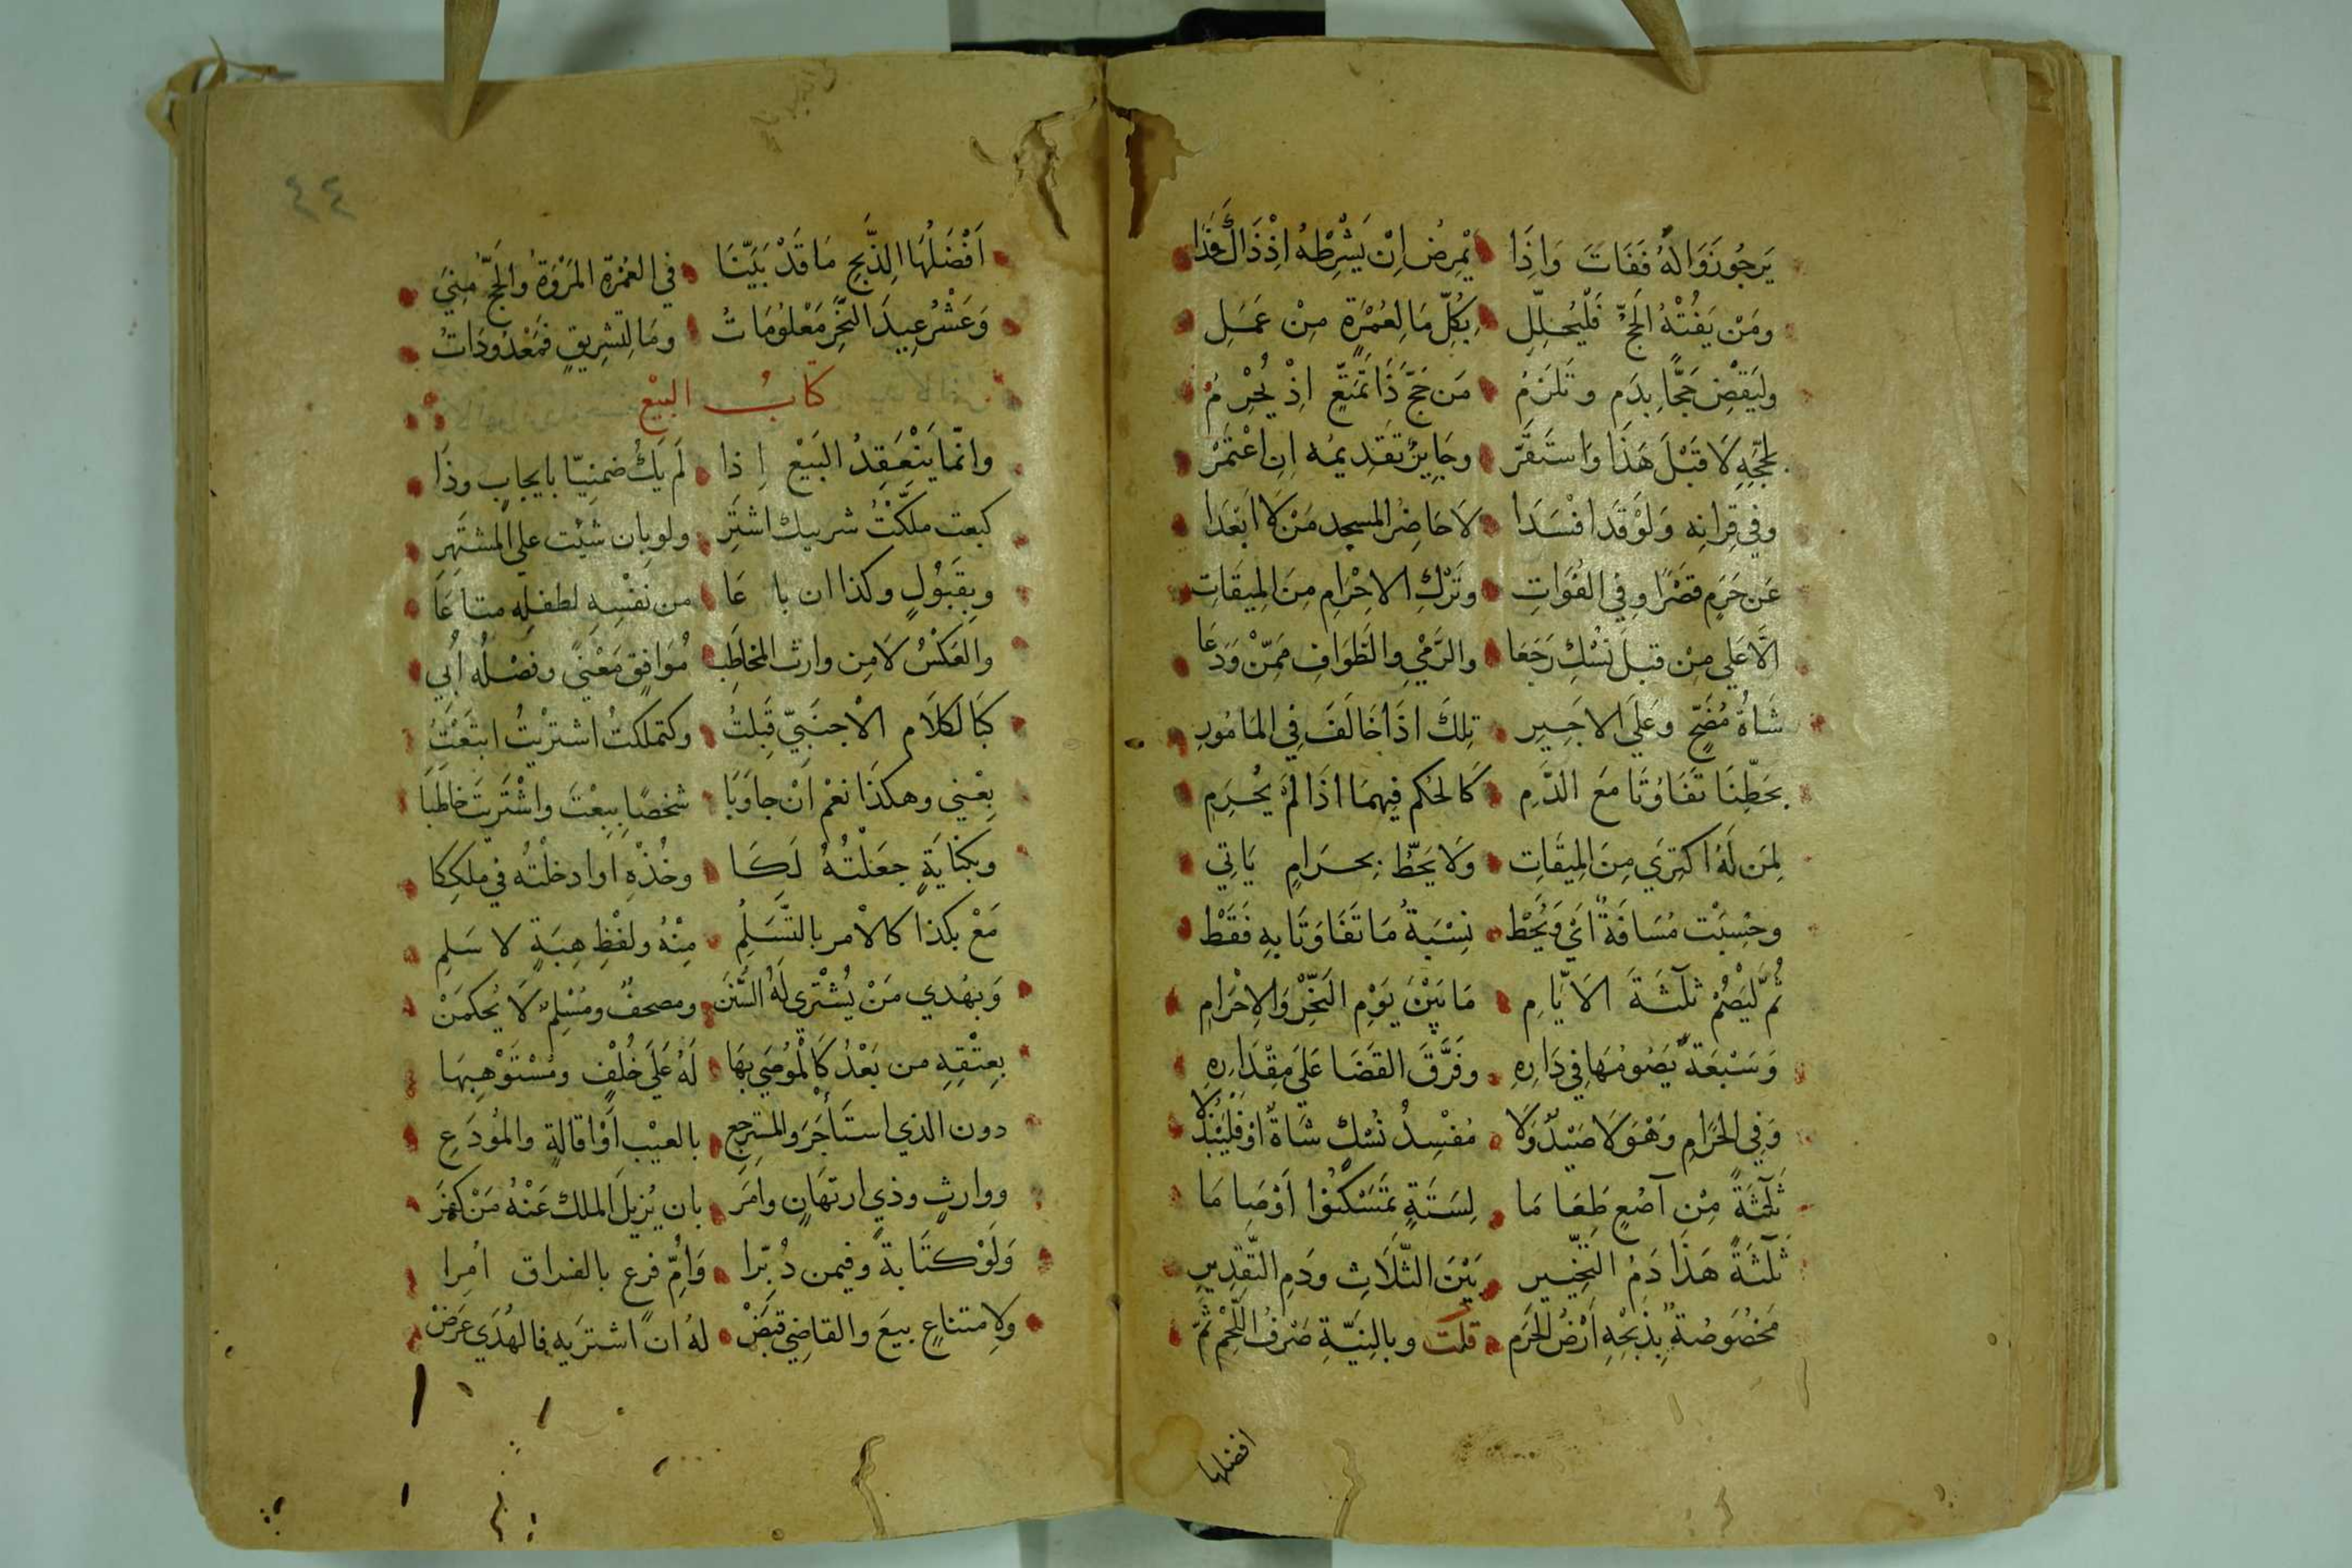 يَرجُو زَوَالَهُ فَفَاتَ وَاِذَا يَمْرِضُ اِنْ يَشْرِطْهُ اِذْ ذَاكَ فَذَا
ومَنْ يَفُتْهُ الَحجُّ فَلْيُحَلِّلِ بِكُلِّ مَا لِعُمْرَةٍ مِنْ عَمَلِ
وليَقْضِ حَجًّا بِدَمٍ وتَلزَمُ مَن حَجَّ ذَا تَمَتُّعٍ اِذْ يُحْرِمُ
بِحَجِّهِ لَا قَبْلَ هَذَا وَاستَقَرّ وجَايِزٌ تَقدِيمُه اِن اعْتَمَرْ
وفي قِرانِه وَلَوْ قَد افْسَدَا لَا حَاضِرُ المسجِد مَنْ لَا ابْعَدَا
عَن حَرَمٍ قَصْرًا وفي الفَوَاتِ وتَرْكِ الاحْرَامِ مِنَ المِيقَاتِ
الَّا عَلي مِنْ قبلَ نُسْكٍ رَجَعَا والرَّمْيِ والطَّوَافِ مَمّنْ وَدَعَا
شَاةُ مُضَحٍّ وعَلَي الاجَيِرِ تِلكَ اذَا خَالَفَ فِي المَامُورِ
بِحَطِّنَا تَفَاوُتَا مَعَ الدَّمِ كَالحُكم فِيهمَا اذَا لَمْ يُحْرِمِ
لِمَن لَهُ اكتِرَي مِنَ المِيقَاتِ وَلَا يَحُطُّ بِحرَامٍ يَاتِي
وحُسِبَتْ مَسَافَةٌ اَيْ وَيُحَطْ نِسْبَةُ مَا تَفَاوَتَا بِهِ فَقَطْ
ثُمَّ لْيَصُمْ ثلَثَةَ الَايَّامِ مَا بَيْنَ يَوْمِ النَّحْرِ وَالاِحْرَامِ
وَسَبْعَةٌ يَصُومُهَا فِي دَارِهِ وفَرَّقَ القَضَا عَلَي مِقْدَارِهِ
وَفِي الحَرَامِ وَهْوَ لَا صَيْدٌ وَلَا مُفْسِدُ نُسْكٍ شَاةٌ اوْ فَلْيَبْذُلَا
ثَلَثَةً مِنْ آصُعٍ طَعَا مَا لِسَتَةٍ تَمَسْكَنُوْا اَوْ صَا مَا
ثَلثَةً هَذَا دَمُ التَّخْيِير بَيْنَ الثَّلَاثِ ودَمِ التَّقدِيرِ
مَخْصُوصَةٌ بِذَبْحِهِ اَرْضُ الحَرَم قلت وبالِنيَّةِ صَرْفُ اللَّحْمِ ثَمّ
افضلها
٤٤
اَفْضَلُهَا لِلذَّبحِ مَا قَدْ بَيَّنَا في العُمْرَة المَرْوَةُ والحَجِّ مُنِيَ
وَعَشْرُ عِيدِ النَّحْرِ مَعْلُومَاتُ ومَا لتَشرِيقٍ فَمَعْدُودَاتُ
كتابُ البَيْع
وانمّا يَنْعَقِدُ البَيْعُ اِذا لَم يَكُ ضِمنِيّا بايجابٍ وذَا
كبعت ملّكْتُ شريك اشتَرِ ولو بان شئت علي المشتَهِرِ
وبِقَبُولٍ وكذا ان باعَا من نفْسِهِ لطفلِه متاعَا
والعَكْسُ لَا من وارث المخاطَبِ مُوَافِقٍ مَعْنيً وفصْلُه اُبي
كَبالكَلَام الاجنَبِيّ قَبِلتُ وكتملكتُ اشتريْتُ ابتَعْتُ
بِعْنِي وهكذَا نعْم اِنْ جاوَبَا شخصًا بِبِعْتَ واشْتَريتَ خاطَبَا
وبكِنايَةٍ جعَلْتُهُ لَكَا وخُذْهِ اوادخلْتُه في ملكِكا
مَعْ بكذا كالامر بالتَّسَلُّمِ مِنْهُ ولفْظِ هِبَةٍ لا سَلمِ
وَبهُدي مَنْ يُشْتَرى لَهُ السُّنَن ومصحفٌ ومُسْلِمٌ لَا يُحكمَنْ
بِعِتْقِهِ من بَعْدُ كَالْمُوصَي بهَا لَهُ عَلَي خُلْفٍ ومُسْتَوْهِبِهَا
دون الذي استَأجَرَ والمسترجِع بالعيْب اَوْ اقالةٍ والمُودَعِ
ووارثٍ وذي ارتهَانٍ وامَر بان يُزيلَ الملك عَنْهُ مَنْ كفَرَ
وَلَوْ كتَابةً وفيمن دُبِّرا وَاُمِّ فرعٍ بالفراق امُِرا
ولامتناعٍ بيعَ والقاضِي قَبَضْ لهُ ان اشتريَه فالهُدَي عَرَضْ